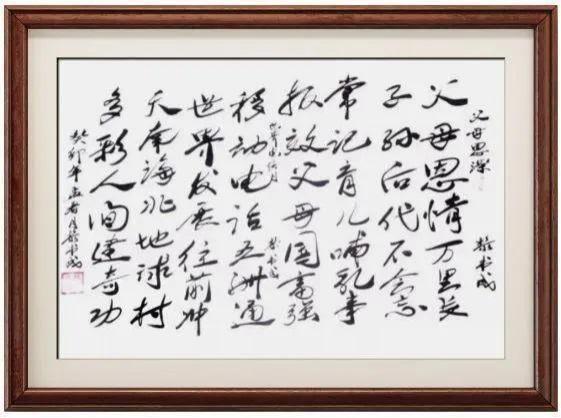 父母恩深
父母恩情万里长
子孙后代不会忘
常记育儿哺乳事
报效父母国富强
移动电话五洲通
世界发展往前冲
天南海北地球村
多彩人间建奇功
癸卯年孟春月